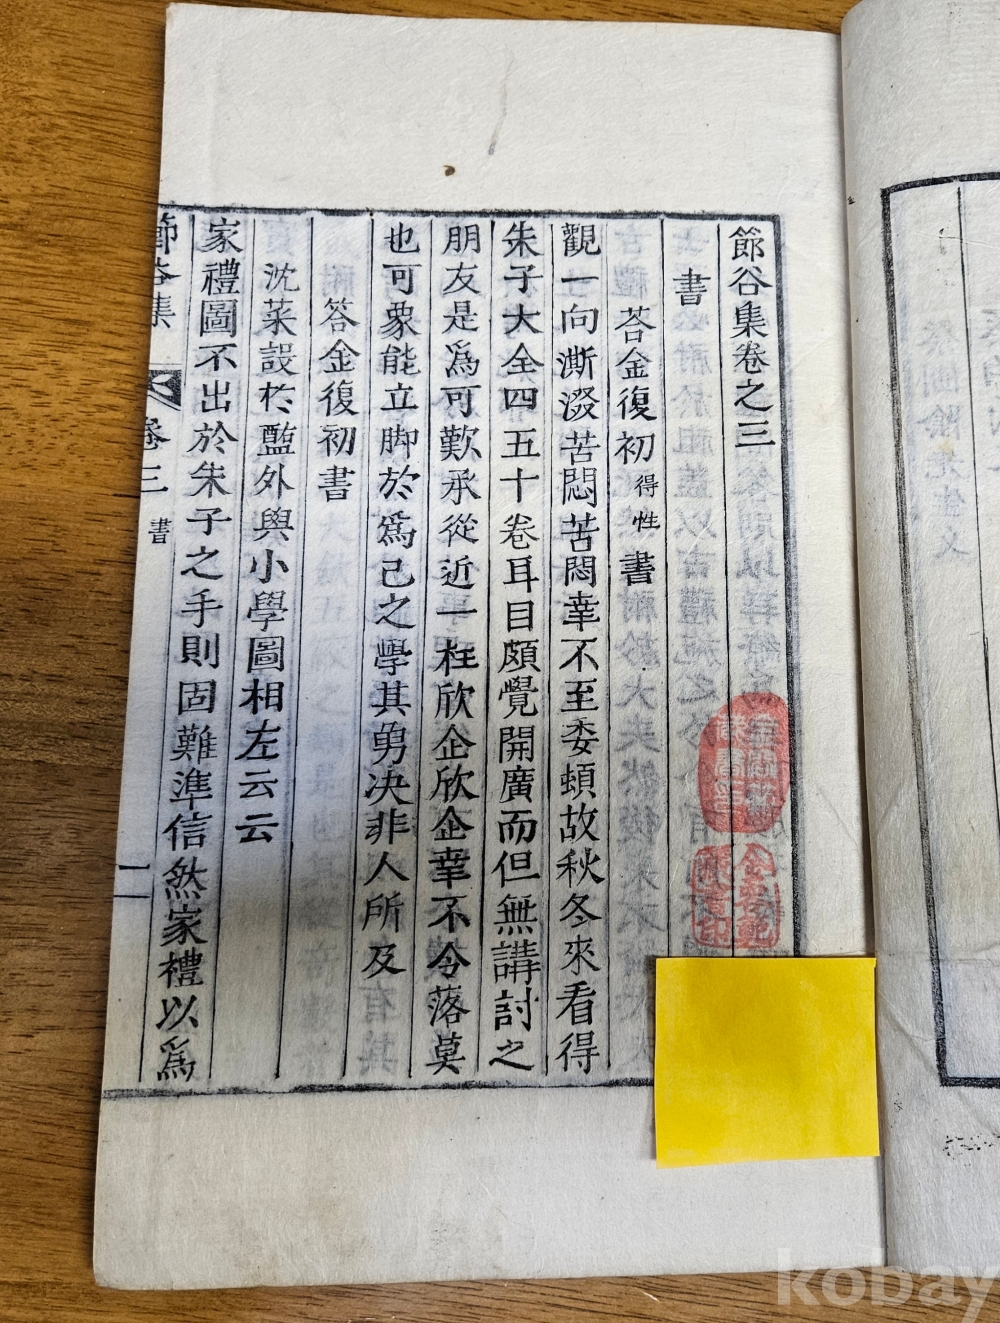 節谷集卷之三
書
答金復初得性書
觀一向澌澌苦悶苦悶幸不至委頓故秋冬來看得
朱子大全四五十卷耳目頗覺開廣而但無講討之
朋友是爲可歎承從近一枉欣企欣企幸不令落莫
也可象能立脚於爲己之學其勇决非人所及
答金復初書
沈菜設於醢外與小學圖相左云云
家禮圖不出於朱子之手則固難準信然家禮以爲
節谷集 卷三 書 一
kobay